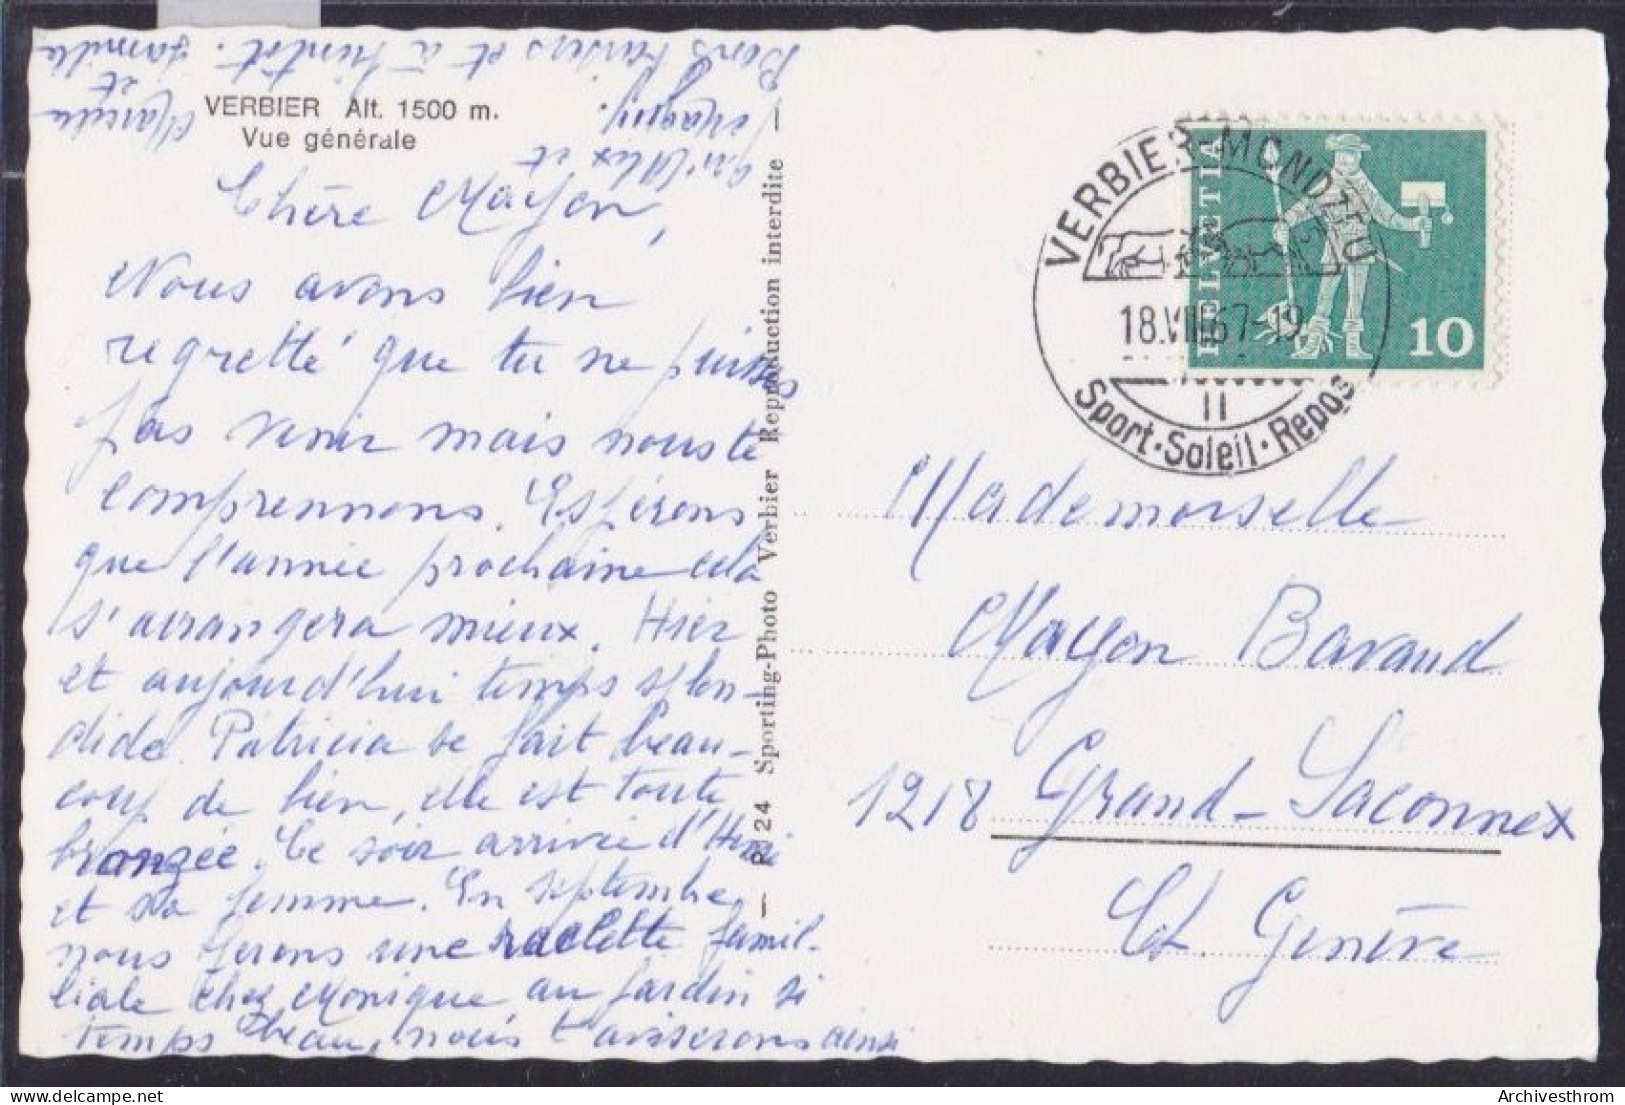 VERBIER Alt. 1500 m.
Vue générale
Chère Mayon,
Nous avons bien
regretté que tu ne puisses
pas venir mais nous te
comprennons. Espérons
que l'année prochaine cela
s'arrangera mieux. Hier
et aujourd'hui temps splen-
dide. Patricia se fait beau-
coup de bien, elle est toute
bronzée. Ce soir arrivée d'Henri
et sa femme. En septembre
nous ferons une raclette famil-
liale chez Monique au jardin si
temps beau, nous t'aviserons ainsi
et
Bons baisers et à bientôt. famille
et
— P 24 Sporting-Photo Verbier Reproduction interdite —
VERBIER-MONDZEU
18.VIII.67-19
11
Sport·Soleil·Repos
HELVETIA
10
Mademoiselle
Mayon Bavaud
1218 Grand-Saconnex
Ct. Genève
Archivesthrom